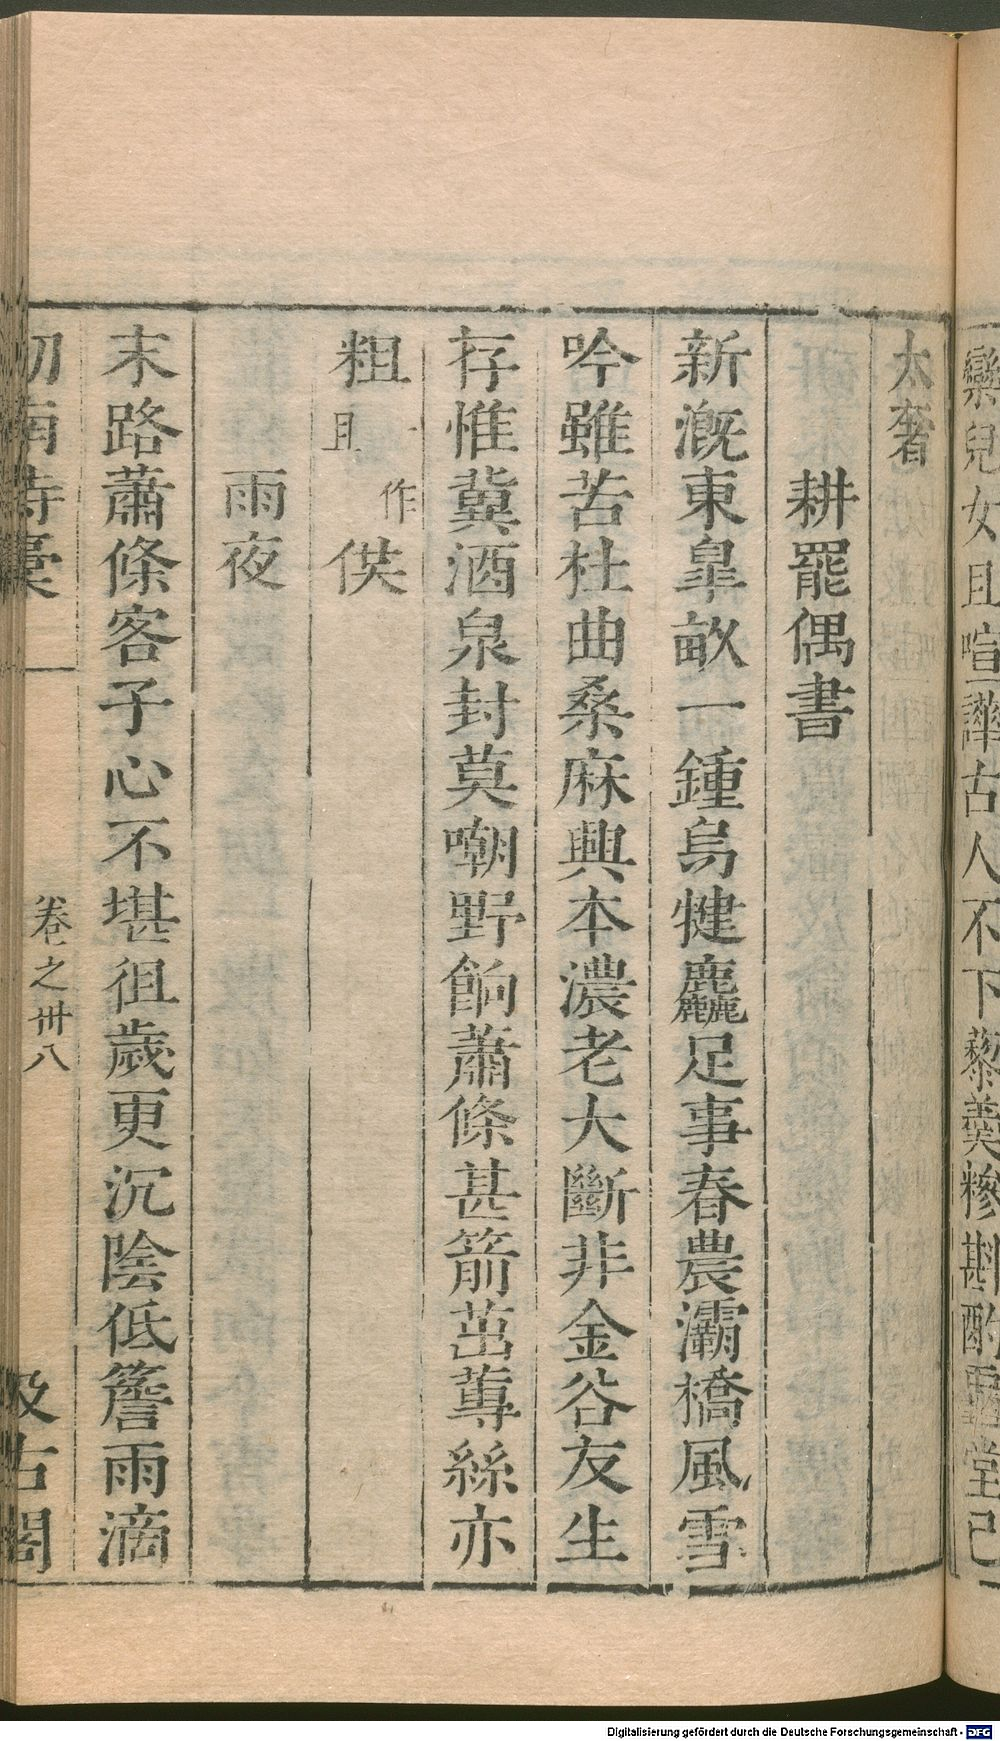 欒兒女且喧譁古人不下藜羹糝斟酌龜堂已
太奢
耕罷偶書
新溉東臯畝一鍾烏犍麤足事春農灞橋風雪
吟雖苦杜曲桑麻興本濃老大斷非金谷友生
存惟冀酒泉封莫嘲野餉蕭條甚箭茁蓴絲亦
粗 一作且 供
雨夜
末路蕭條客子心不堪徂歲更沉陰低簷雨滴
劍南詩稾 卷之卅八 汲古閣
Digitalisierung gefördert durch die Deutsche Forschungsgemeinschaft - DFG